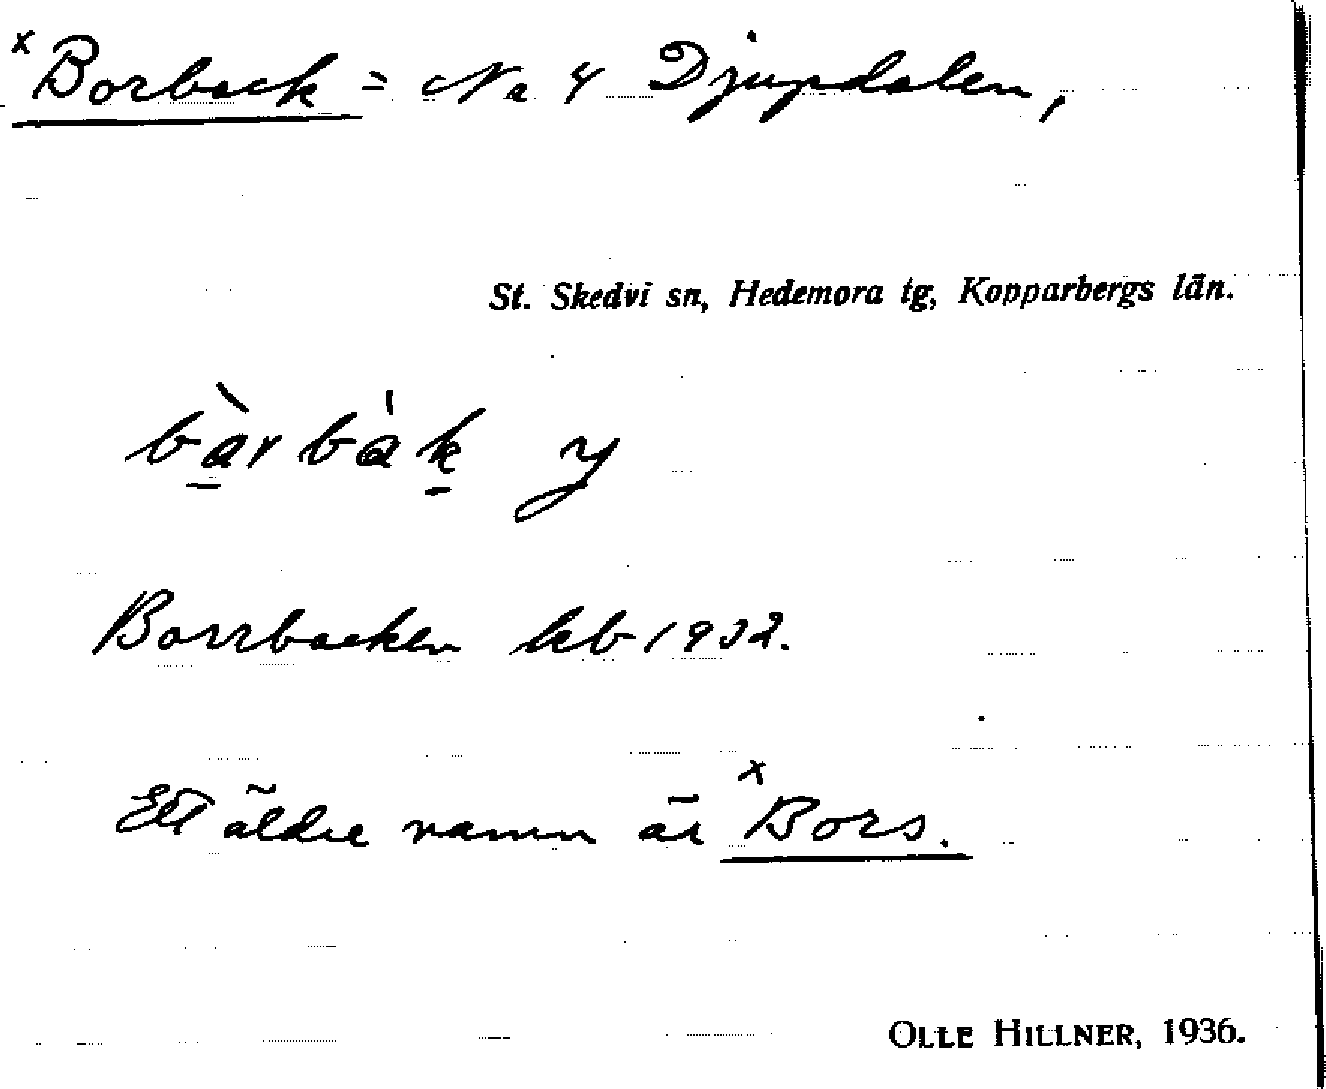 x Borback = No 4 Djupdalen,
St. Skedvi sn, Hedemora tg, Kopparbergs län.
bàrbàk y
Borrbacken kb 1932.
Ett äldre namn är x Bors.
OLLE HILLNER, 1936.